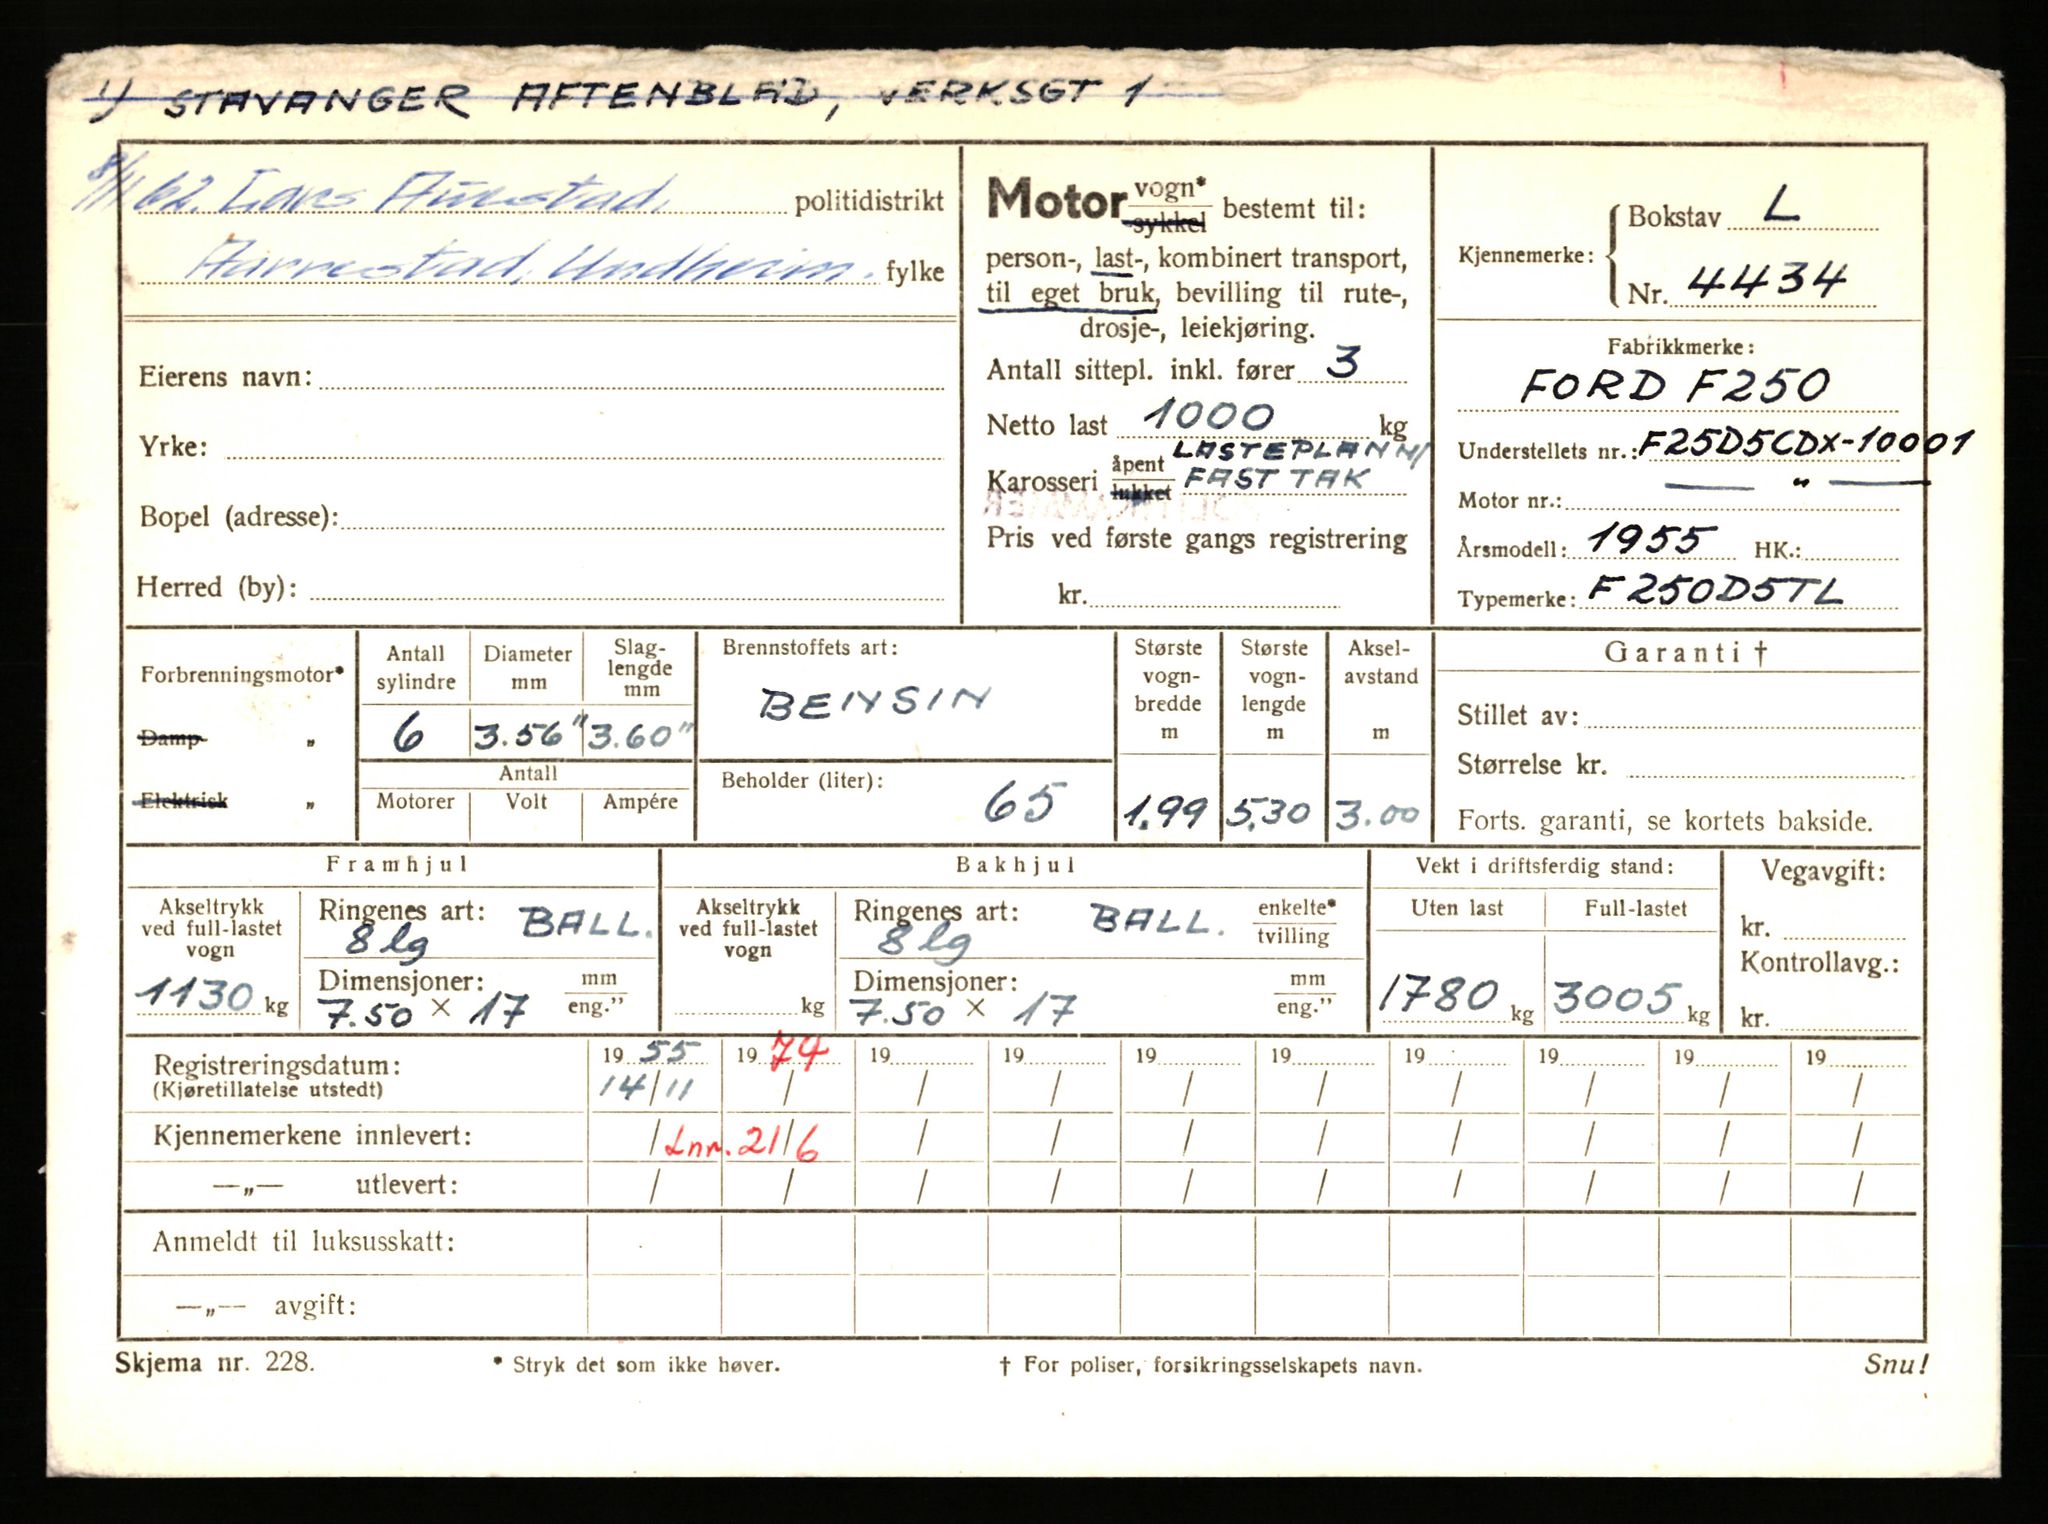 1) STAVANGER AFTENBLAD, VERKSGT 1
8/11 62. Lars Aurestad. politidistrikt
Aarrestad, Undheim. fylke
Eierens navn:
Yrke:
Bopel (adresse):
Herred (by):
Motor vogn* sykkel bestemt til:
person-, last-, kombinert transport,
til eget bruk, bevilling til rute-,
drosje-, leiekjøring.
Antall sittepl. inkl. fører 3
Netto last 1000 kg
Karosseri åpent lukket LASTEPLAN M/
FAST TAK
Pris ved første gangs registrering
kr.
Kjennemerke: Bokstav L
Nr. 4434
Fabrikkmerke:
FORD F250
Understellets nr.: F25D5CDX-10001
Motor nr.: — " —
Årsmodell: 1955 HK.:
Typemerke: F250D5TL
Forbrenningsmotor*
Damp "
Elektrisk "
Antall sylindre Diameter mm Slaglengde mm
6 3.56" 3.60"
Antall
Motorer Volt Ampére
Brennstoffets art:
BENSIN
Beholder (liter):
65
Største vogn-bredde m Største vogn-lengde m Aksel-avstand m
1.99 5.30 3.00
Garanti †
Stillet av:
Størrelse kr.
Forts. garanti, se kortets bakside.
Framhjul
Akseltrykk ved full-lastet vogn
1130 kg
Ringenes art: BALL.
8 lg
Dimensjoner: mm eng."
7.50 × 17
Bakhjul
Akseltrykk ved full-lastet vogn
kg
Ringenes art: BALL. enkelte* tvilling
8 lg
Dimensjoner: mm eng."
7.50 × 17
Vekt i driftsferdig stand:
Uten last Full-lastet
1780 kg 3005 kg
Vegavgift:
kr.
Kontrollavg.:
kr.
Registreringsdatum: 19 55 19 74 19 19 19 19 19 19 19 19
(Kjøretillatelse utstedt) 14/11 / / / / / / / / /
Kjennemerkene innlevert: / Lnr. 21/6 / / / / / / / /
—„— utlevert: / / / / / / / / / /
Anmeldt til luksusskatt:
—„— avgift:
Skjema nr. 228. * Stryk det som ikke høver. † For poliser, forsikringsselskapets navn. Snu!